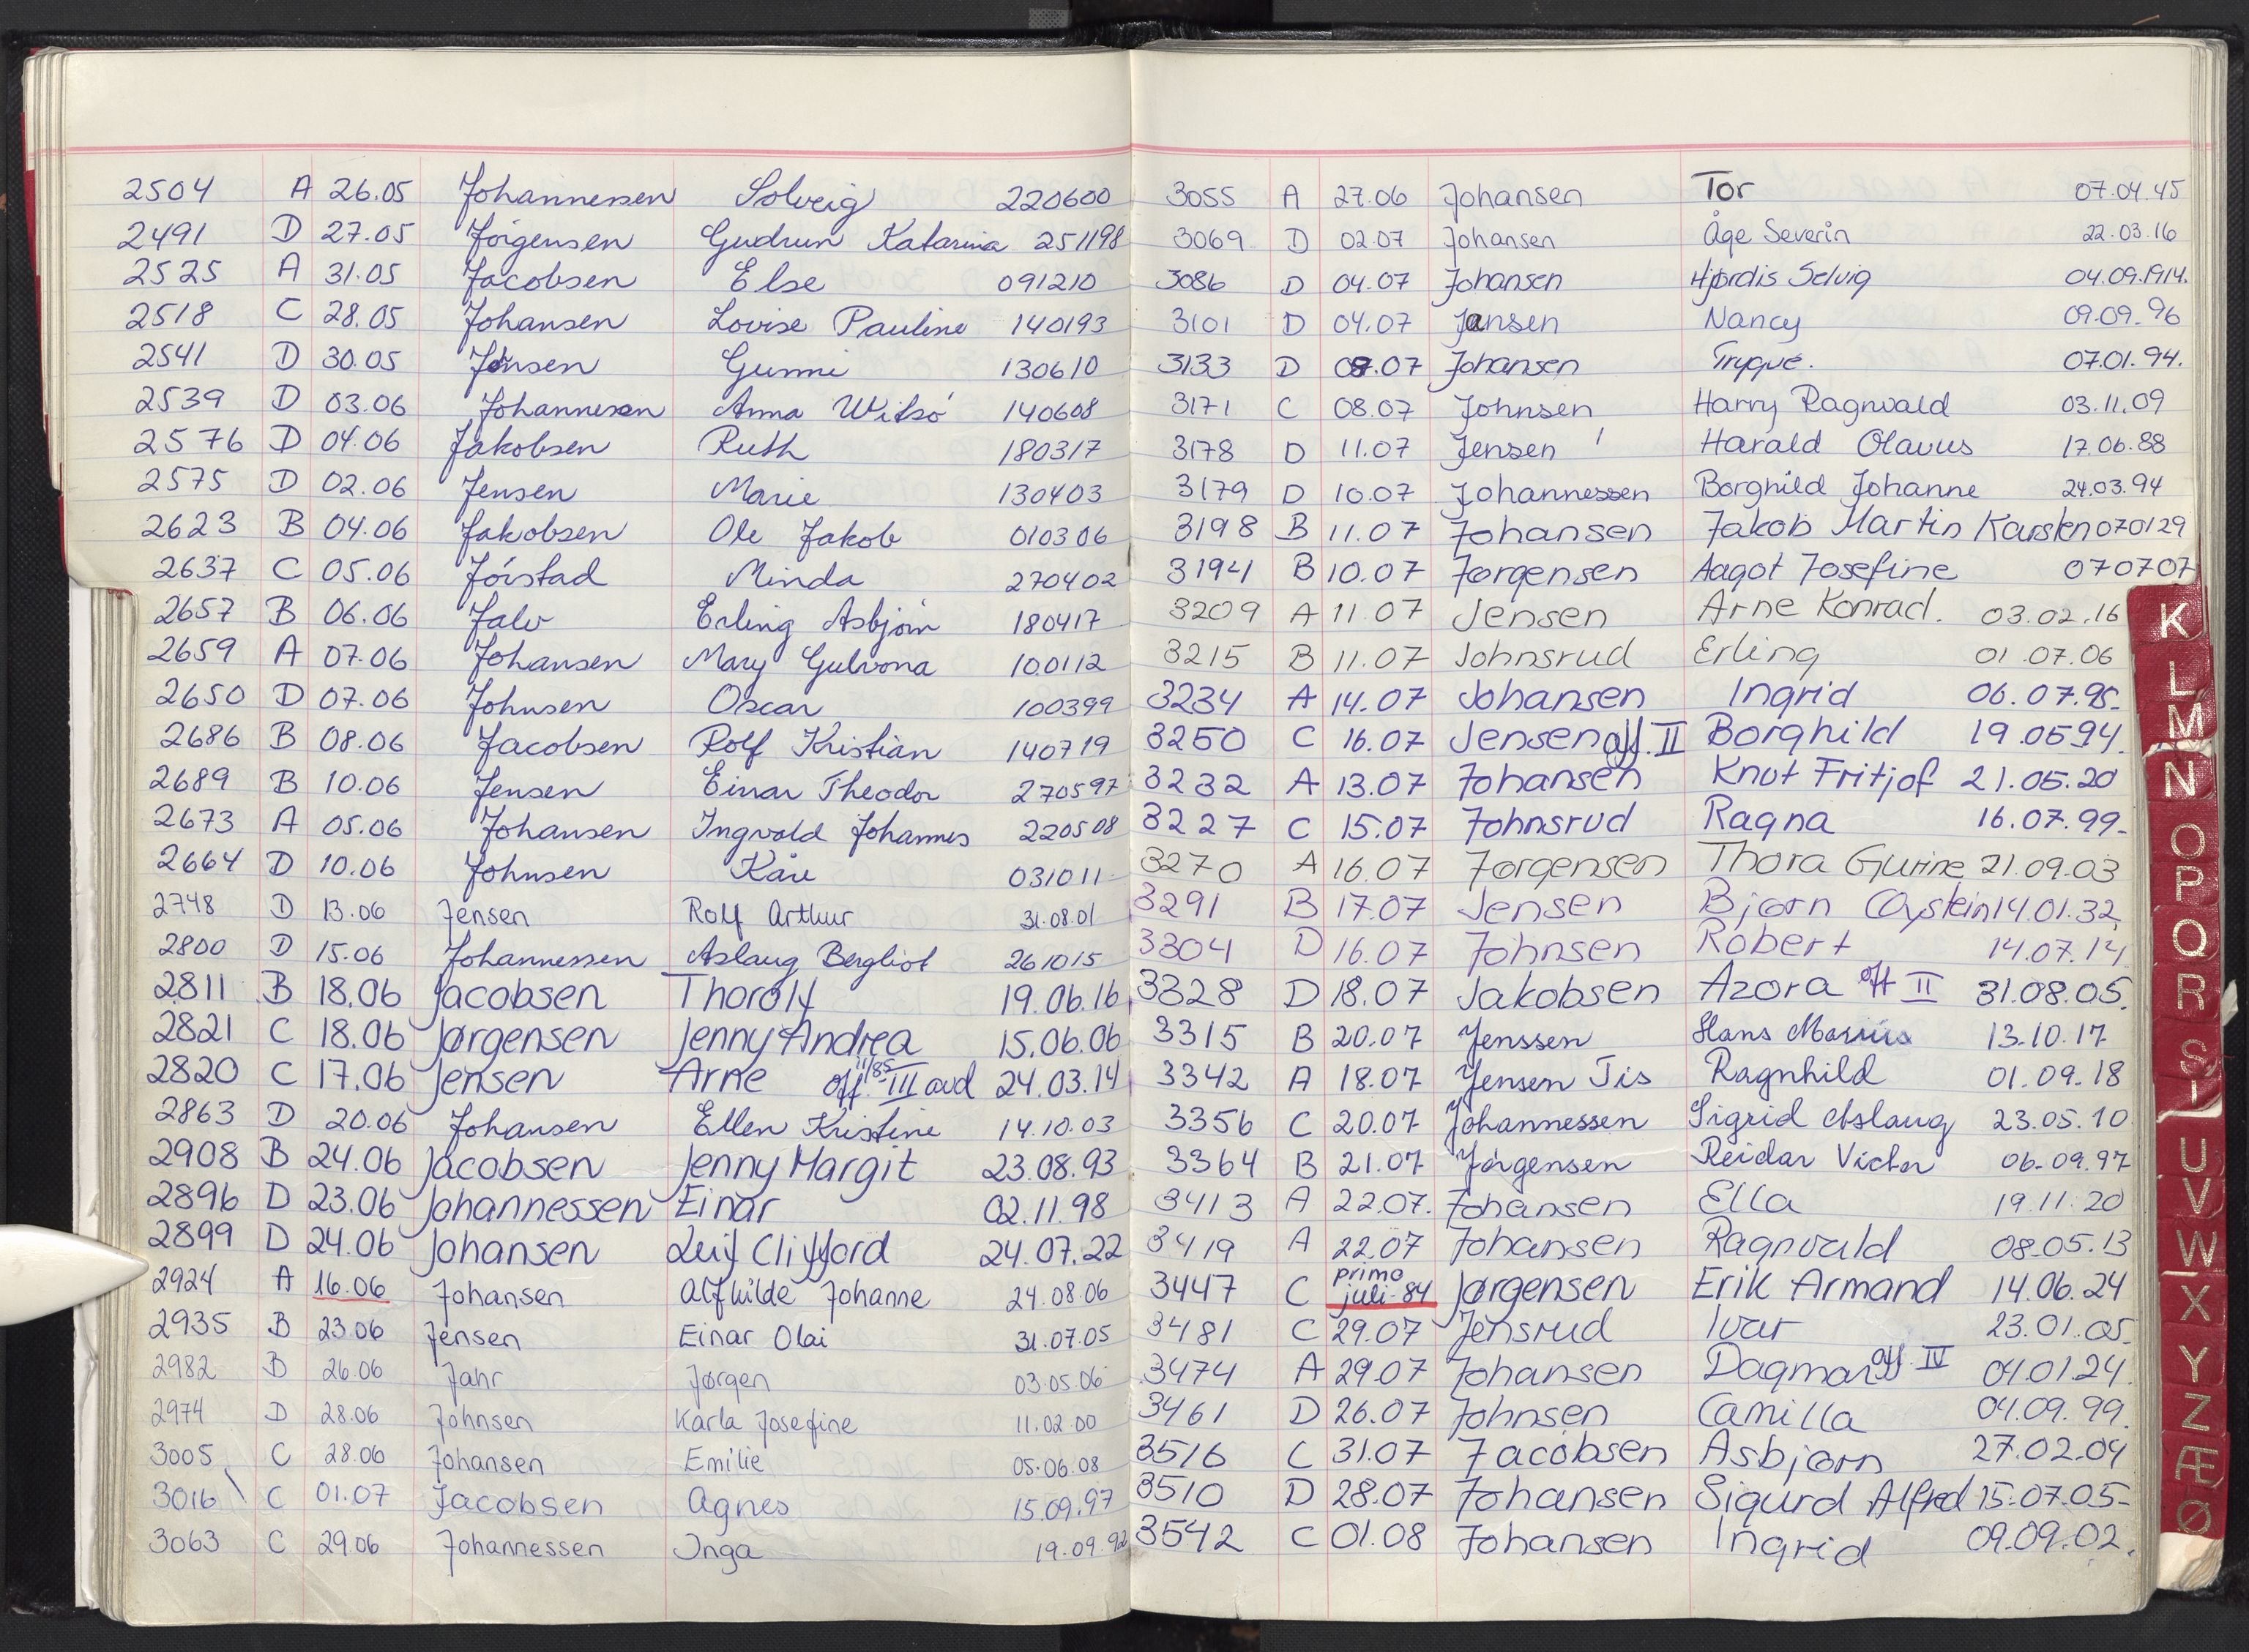 2504 A 26.05 Johannessen Solveig 220600
2491 D 27.05 Jörgensen Gudrun Katarina 251198
2525 A 31.05 Jacobsen Else 091210
2518 C 28.05 Johansen Lovise Pauline 140193
2541 D 30.05 Jensen Gunni 130610
2539 D 03.06 Johannesen Anna Witsö 140608
2576 D 04.06 Jakobsen Ruth 180317
2575 D 02.06 Jensen Marie 130403
2623 B 04.06 Jakobsen Ole Jakob 010306
2637 C 05.06 Jörstad Minda 270402
2657 B 06.06 Jalv Erling Asbjörn 180417
2659 A 07.06 Johansen Mary Gulvona 100112
2650 D 07.06 Johnsen Oscar 100399
2686 B 08.06 Jacobsen Rolf Kristian 140719
2689 B 10.06 Jensen Einar Theodor 270597
2673 A 05.06 Johansen Ingvald Johannes 220508
2664 D 10.06 Johnsen Kåre 031011
2748 D 13.06 Jensen Rolf Arthur 31.08.01
2800 D 15.06 Johannessen Aslaug Bergliot 261015
2811 B 18.06 Jacobsen Thorolf 19.06.16
2821 C 18.06 Jørgensen Jenny Andrea 15.06.06
2820 C 17.06 Jensen Arne off. 11/85 III avd 24.03.14
2863 D 20.06 Johansen Ellen Kristine 14.10.03
2908 B 24.06 Jacobsen Jenny Margit 23.08.93
2896 D 23.06 Johannessen Einar 02.11.98
2899 D 24.06 Johansen Leif Clifford 24.07.22
2924 A 16.06 Johansen Alfhilde Johanne 24.08.06
2935 B 23.06 Jensen Einar Olai 31.07.05
2982 B 26.06 Jahr Jørgen 03.05.06
2974 D 28.06 Johnsen Karla Josefine 11.02.00
3005 C 28.06 Johansen Emilie 05.06.08
3016 C 01.07 Jacobsen Agnes 15.09.97
3063 C 29.06 Johannessen Inga 19.09.92
3055 A 27.06 Johansen Tor 07.04.45
3069 D 02.07 Johansen Åge Severin 22.03.16
3086 D 04.07 Johansen Hjørdis Selvig 04.09.1914.
3101 D 04.07 Jansen Nancy 09.09.96
3133 D 07.07 Johansen Trygve. 07.01.94.
3171 C 08.07 Johnsen Harry Ragnvald 03.11.09
3178 D 11.07 Jensen Harald Olavus 17.06.88
3179 D 10.07 Johannessen Borghild Johanne 24.03.94
3198 B 11.07 Johansen Jakob Martin Karsten 070129
3194 B 10.07 Jørgensen Aagot Josefine 070707
3209 A 11.07 Jensen Arne Konrad. 03.02.16
3215 B 11.07 Johnsrud Erling 01.07.06
3234 A 14.07 Johansen Ingrid 06.07.95.
3250 C 16.07 Jensen off. II Borghild 19.0594.
3232 A 13.07 Johansen Knut Fritjof 21.05.20
3227 C 15.07 Johnsrud Ragna 16.07.99.
3270 A 16.07 Jørgensen Thora Gurine 21.09.03
3291 B 17.07 Jensen Bjørn Øystein 14.01.32
3304 D 16.07 Johnsen Robert 14.07.14
3328 D 18.07 Jakobsen Azora off II 31.08.05.
3315 B 20.07 Jenssen Hans Marius 13.10.17
3342 A 18.07 Jensen Tis Ragnhild 01.09.18
3356 C 20.07 Johannessen Sigrid Aslaug 23.05.10
3364 B 21.07 Jørgensen Reidar Victor 06.09.97
3413 A 22.07. Johansen Ella 19.11.20
3419 A 22.07 Johansen Ragnvald 08.05.13
3447 C primo juli-84 Jørgensen Erik Armand 14.06.24
3481 C 29.07 Jensrud Ivar 23.01.05.
3474 A 29.07 Johansen Dagmar off. IV 04.01.24.
3461 D 26.07 Johnsen Camilla 04.09.99.
3516 C 31.07 Jacobsen Asbjørn 27.02.04
3510 D 28.07 Johansen Sigurd Alfred 15.07.05-
3542 C 01.08 Johansen Ingrid 09.09.02.
K
L
M
N
O
P
Q
R
S
T
U
V
W
X
Y
Z
Æ
Ø